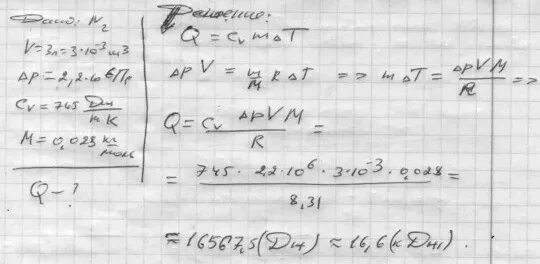 Дано: N₂
V=3л=3·10⁻³ м3
Δp=2,2·10⁶Па
Cv=745 Дж/кг К
M=0,028 кг/моль
Q-?
Решение:
Q = Cv m ΔT
Δp V = m/M R ΔT => m ΔT = ΔpVM/R =>
Q = Cv ΔpVM/R =
= 745 · 2,2·10⁶ · 3·10⁻³ · 0,028 / 8,31 =
≈ 16567,5 (Дж) ≈ 16,6 (кДж).